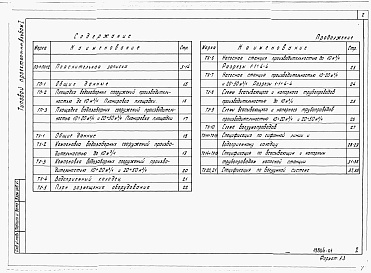 2
Типовой проект
Альбом I
Содержание
Марка
Наименование
Стр.
Пояснительная записка
3-14
ГП-1 Общие данные 15
ГП-2 Площадка водозаборных сооружений производитель-
ностью до 10 м³/ч. Планировка площадки. 16
ГП-3 Площадка водозаборных сооружений производитель-
ностью 10÷20 и 20÷50 м³/ч. Планировка площадки 17
ТХ-1 Общие данные 18
ТХ-2 Компоновка водозаборных сооружений произво-
дительностью до 10 м³/ч 19
ТХ-3 Компоновка водозаборных сооружений произво-
дительностью 10÷20 и 20÷50 м³/ч 20
ТХ-4 Водоприемный колодец 21
ТХ-5 План размещения оборудования 22
Продолжение
Марка
Наименование
Стр.
ТХ-6 Насосная станция производительностью до 10 м³/ч
Разрезы 1-1÷4-4 23
ТХ-7 Насосная станция производительностью 10÷20 м³/ч
и 20÷50 м³/ч. Разрезы 1-1÷4-4 24
ТХ-8 Схема всасывающих и напорных трубопроводов
производительностью до 10 м³/ч 25
ТХ-9 Схема всасывающих и напорных трубопроводов
производительностью 10÷20 м³/ч и 20÷50 м³/ч 26
ТХ-10 Схема воздухопроводов 27
Спецификация по сифонной линии и
водоприемному колодцу
Спецификация по всасывающим и напорным
трубопроводам насосной станции
Спецификация по вакуумной системе
2
Формат А3